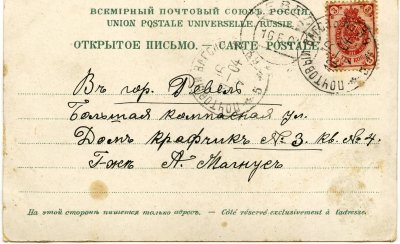 ВСЕМІРНЫЙ ПОЧТОВЫЙ СОЮЗЪ. РОССІЯ.
UNION POSTALE UNIVERSELLE. RUSSIE.
ОТКРЫТОЕ ПИСЬМО. — CARTE POSTALE.
Въ гор. Ревель
Большая компасная ул.
Домъ Крафчикъ № 3. кв. № 4.
Гжѣ А. Магнусъ
На этой сторонѣ пишется только адресъ. — Côté réservé exclusivement à l'adresse.